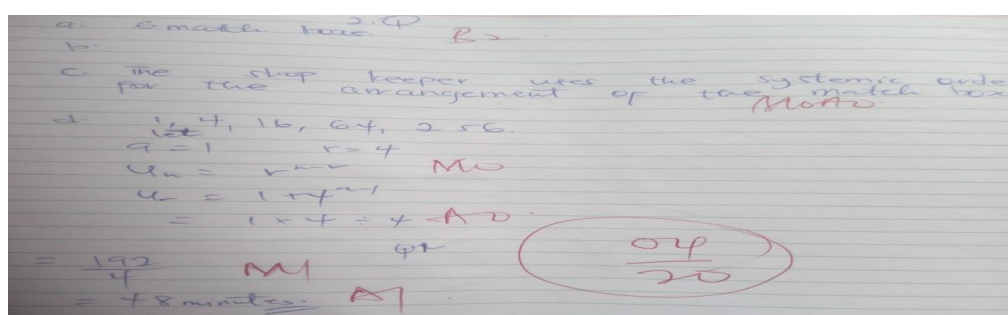 2.
a. 6 match box. B2
b.
c. The shop keeper uses the systemic orde
for the arrangement of the match box
M0A0.
d. 1, 4, 16, 64, 256.
let
a = 1 r = 4
Un = M0
= 1 × 4 ÷ 4 A0
= 192/4 M1
= 48 minutes. A1
04/20